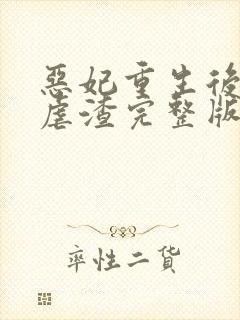 惡妃重生後
虐渣完整版
率性二貨